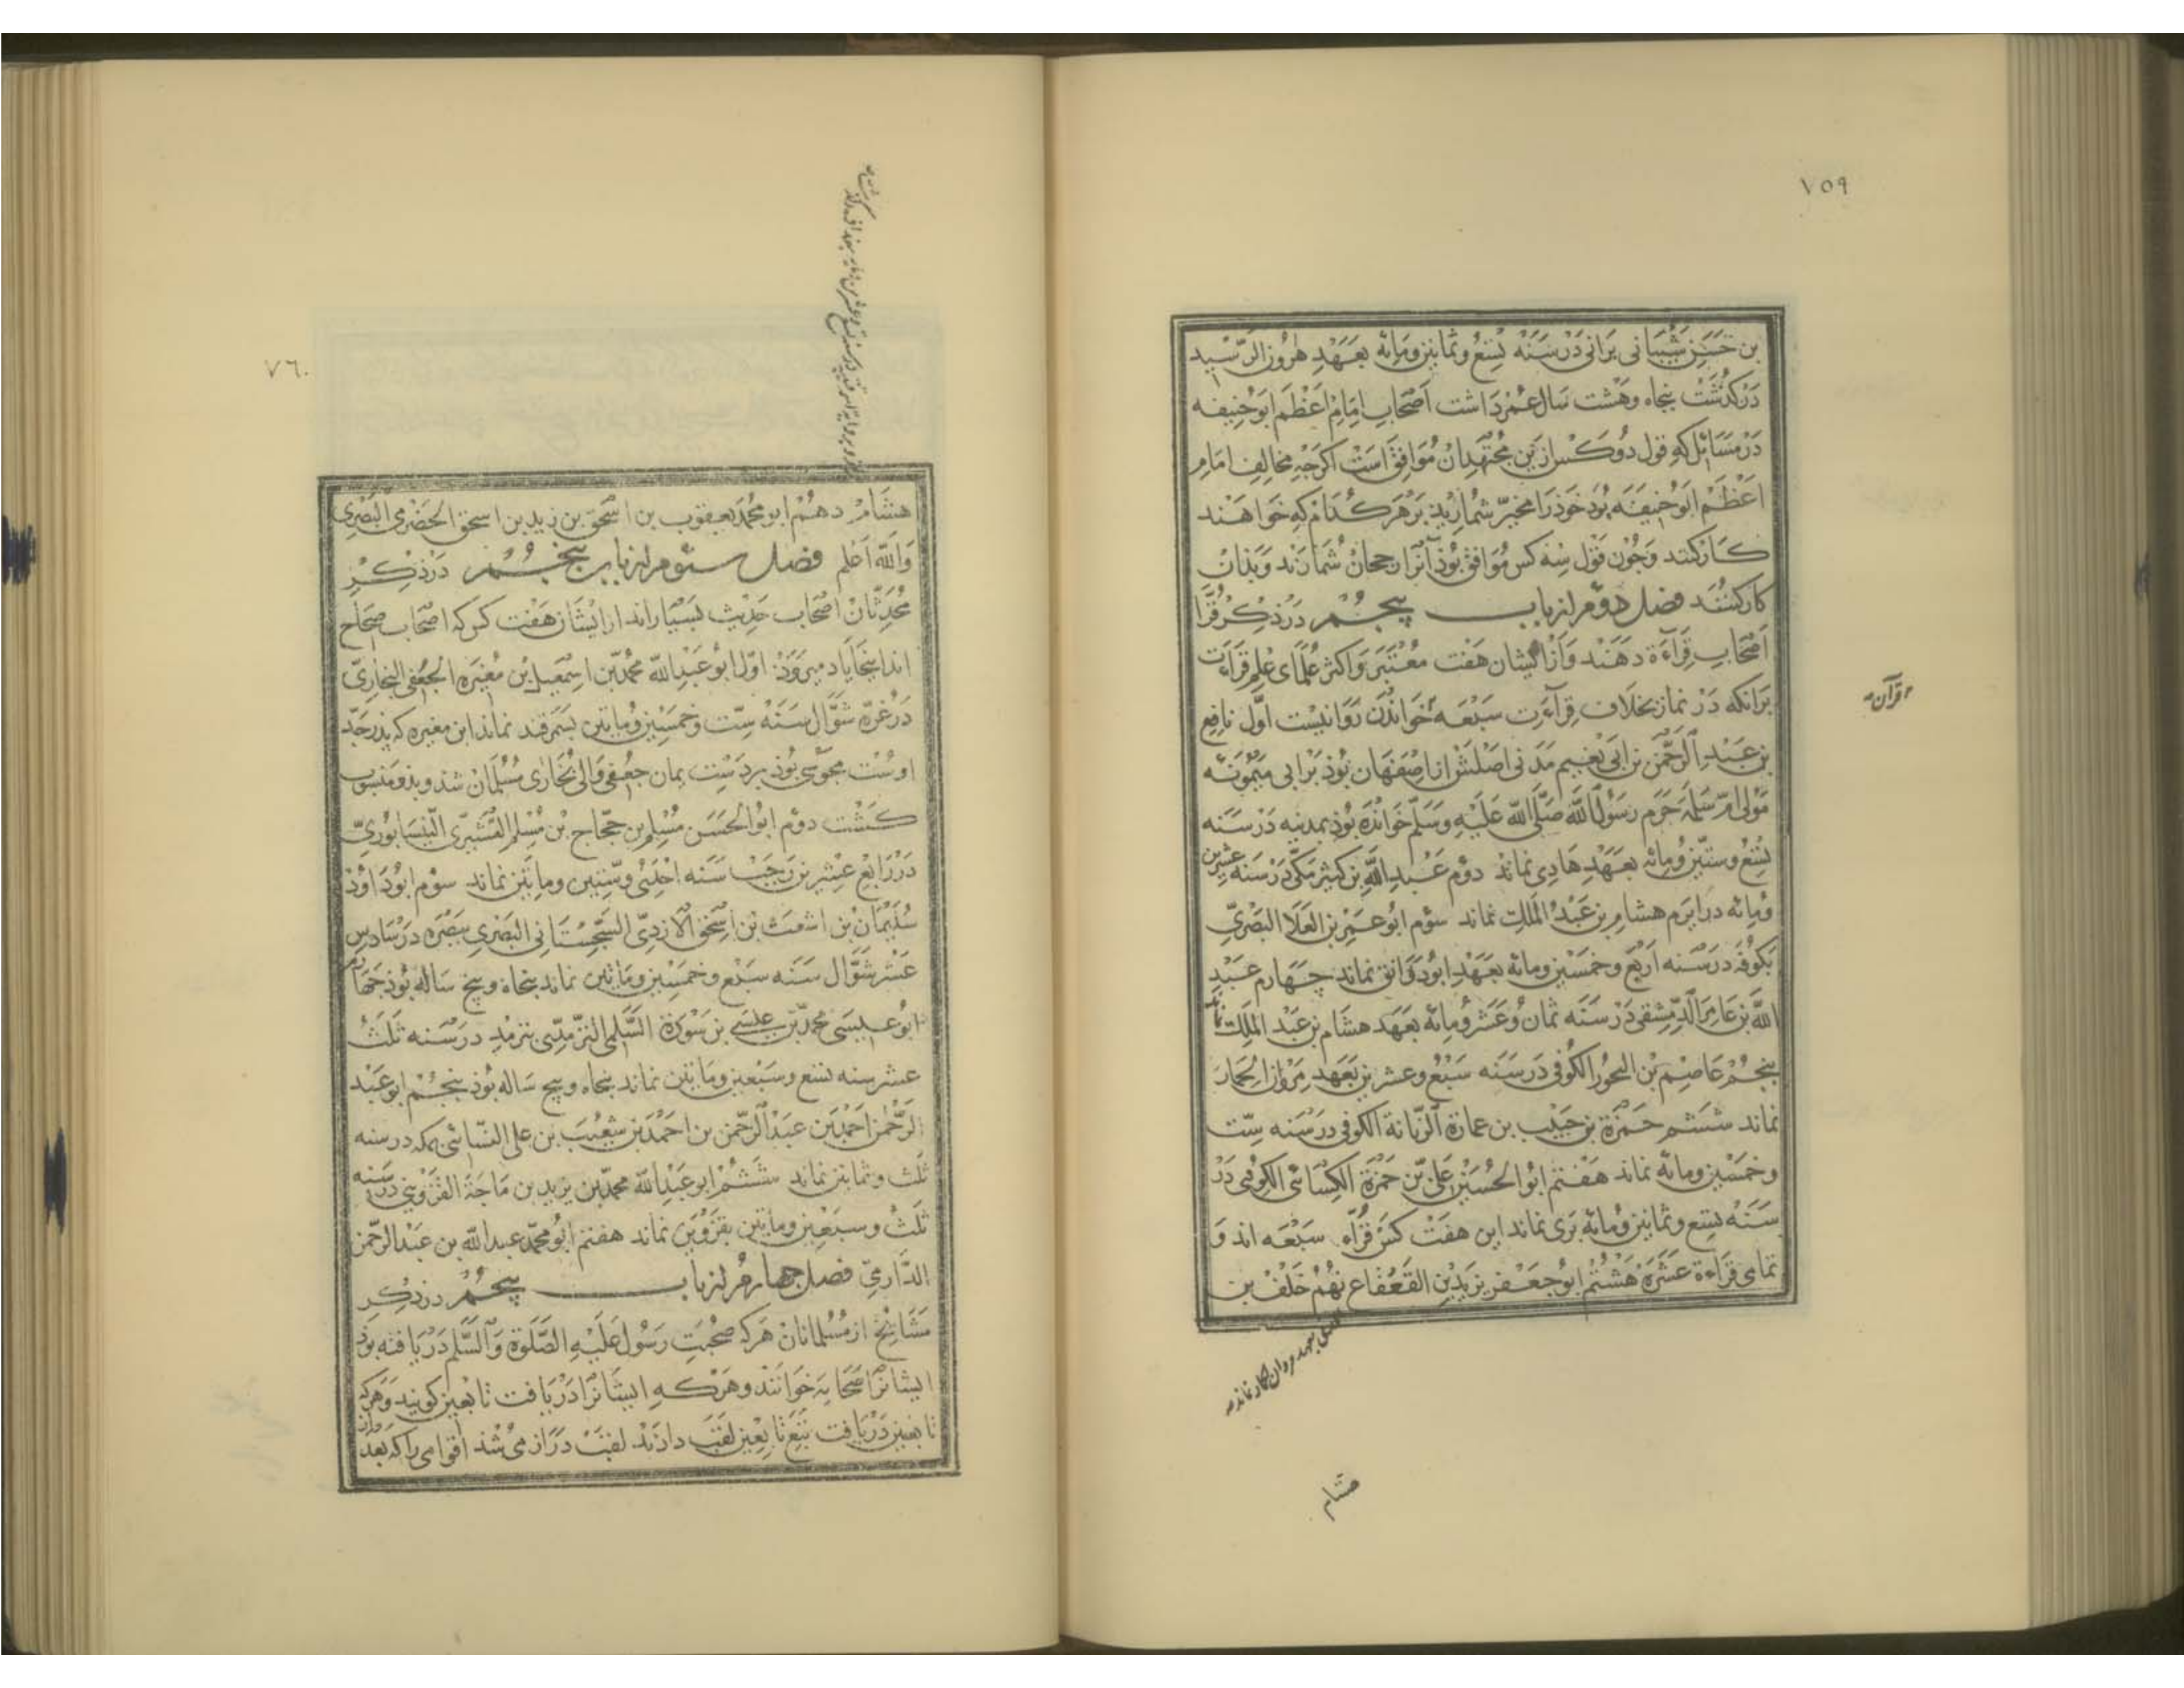 ٧٥٩
بن حسن شیبانی برانی در سنه تسع و ثمانین و مائه بعهد هرون الرشید
درکذشت پنجاه و هشت سال عمر داشت اصحاب امام اعظم ابو حنیفه
در مسائل که قول دو کس ازین مجتهدان موافق است اکرچه مخالف امام
اعظم ابو حنیفه بود خوذ را مخیر شمارند بر هر کدام که خواهند
کار کنند و چون قول سه کس موافق بوذ آنرا رجحان شمارند و بذان
کار کنند فصل دوم از باب پنجم در ذکر قرا
اصحاب قراءة دهند و از ایشان هفت معتبر و اکثر علمای علم قراءت
برانکه در نماز بخلاف قراءت سبعه خواندن روا نیست اول نافع
بن عبد الرحمن بن ابی نعیم مدنی اصلش از اصفهان بوذ بر ابی میمونه
مولی ام سلمه حرم رسول الله صلی الله علیه و سلم خوانده بوذ بمدینه در سنه
تسع و ستین و مائه بعهد هادی نماند دوم عبد الله بن کثیر مکی در سنه عشرین
و مائه در ایام هشام بن عبد الملک نماند سوم ابو عمرو بن العلا البصری
بکوفه در سنه اربع و خمسین و مائه بعهد ابو دوانق نماند چهارم عبد
الله بن عامر الدمشقی در سنه ثمان و عشر و مائه بعهد هشام بن عبد الملک نماند
پنجم عاصم بن النجور الکوفی در سنه سبع و عشرین بعهد مروان الحمار
نماند ششم حمزة بن حبیب بن عمارة الزیانة الکوفی در سنه ست
و خمسین و مائه نماند هفتم ابو الحسین علی بن حمزة الکسائی الکوفی در
سنه تسع و ثمانین و مائه بری نماند این هفت کس قراء سبعه اند و
تمامی قراءة عشره هشتم ابو جعفر یزید بن القعقاع نهم خلف بن
قرآن
بعهد مروان حمار نماند
هشام
٧٦٠
هشام دهم ابو محمد یعقوب بن اسحق بن زید بن اسحق الحضرمی البصری
والله اعلم فصل سوم از باب پنجم در ذکر
محدثان اصحاب حدیث بسیاراند از ایشان هفت کس که اصحاب صحاح
اند اینجا یاد میروذ اول ابو عبد الله محمد بن اسمعیل بن مغیره الجعفی البخاری
در غره شوال سنه ست و خمسین و مائتین بسمرقند نماند ابن مغیره که پدر جد
اوست مجوسی بوذ بر دست یمان جعفی والی بخارای مسلمان شد و بذو منسوب
کشت دوم ابو الحسن مسلم بن حجاج بن مسلم القشیری النیسابوری
در رابع عشرین رجب سنه احدی و ستین و مائتین نماند سوم ابو داوذ
سلیمان بن اشعث بن اسحق الازدی السجستانی البصری ببصره در سادس
عشر شوال سنه سبع و خمسین و مائتین نماند پنجاه و پنج ساله بوذ چهارم
ابو عیسی محمد بن عیسی بن سورة السلمی الترمذی بترمد در سنه ثلث
عشر سنه تسع و سبعین و مائتین نماند پنجاه و پنج ساله بوذ پنجم ابو عبد
الرحمن احمد بن عبد الرحمن بن احمد بن شعیب بن علی النسائی بمکه در سنه
ثلث و ثمانین نماند ششم ابو عبد الله محمد بن یزید بن ماجة القزوینی در سنه
ثلث و سبعین و مائتین بقزوین نماند هفتم ابو محمد عبد الله بن عبد الرحمن
الدارمی فصل چهارم از باب پنجم در ذکر
مشایخ از مسلمانان هر که صحبت رسول علیه الصلوة والسلم دریافته بوذ
ایشانرا صحابه خوانند و هرکه ایشانرا دریافت تابعین کویند و هرکه
تابعین دریافت تبع تابعین لقب دارند لقب دراز می شد اقوامی را که بعد از